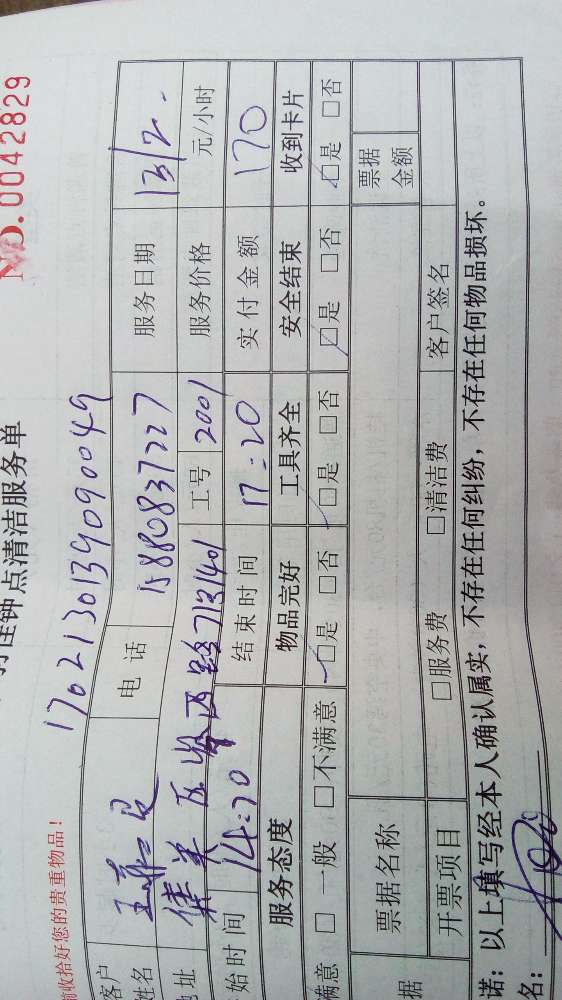 NO.0042829
钟点清洁服务单
1702130139090049
前收拾好您的贵重物品！
客户姓名 电话 15880837227 服务日期 13/2.
地址 集美 路713140 工号 2001 服务价格 元/小时
始时间 14:20 结束时间 17:20 实付金额 170
服务态度 物品完好 工具齐全 安全结束 收到卡片
满意 □一般 □不满意 □是 □否 □是 □否 □是 □否 □是 □否
据 票据名称 票据金额
开票项目 □服务费 □清洁费 客户签名
诺：以上填写经本人确认属实，不存在任何纠纷，不存在任何物品损坏。
名：